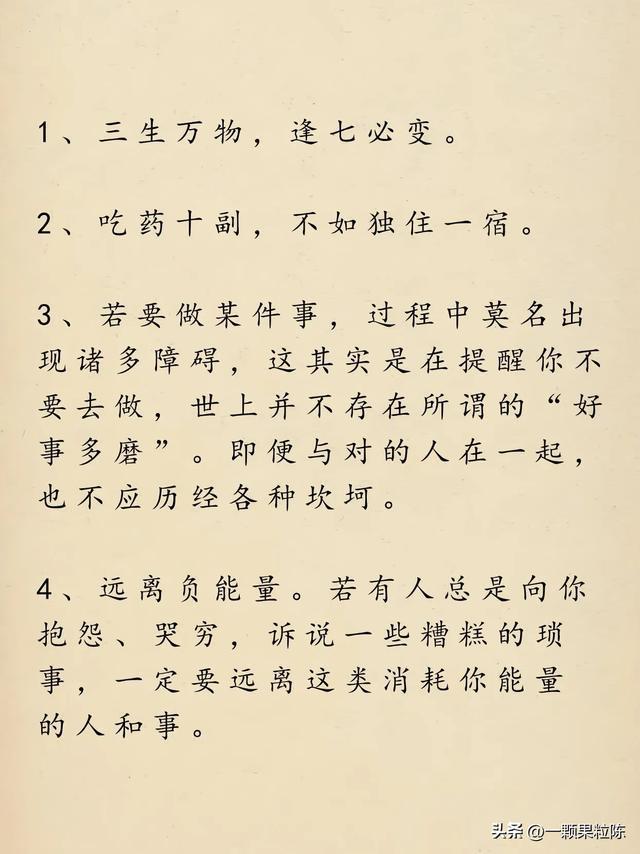 1、三生万物，逢七必变。
2、吃药十副，不如独住一宿。
3、若要做某件事，过程中莫名出
现诸多障碍，这其实是在提醒你不
要去做，世上并不存在所谓的“好
事多磨”。即便与对的人在一起，
也不应历经各种坎坷。
4、远离负能量。若有人总是向你
抱怨、哭穷，诉说一些糟糕的琐
事，一定要远离这类消耗你能量
的人和事。
头条 @一颗果粒陈